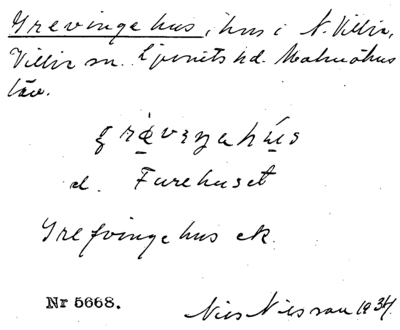 Grevingehus, hus i N. Villie,
Villie sn. Ljunits hd. Malmöhus
län.
d. Furehuset
Grefvingehus ek.
Nr 5668.
Nils Nilsson 1934.